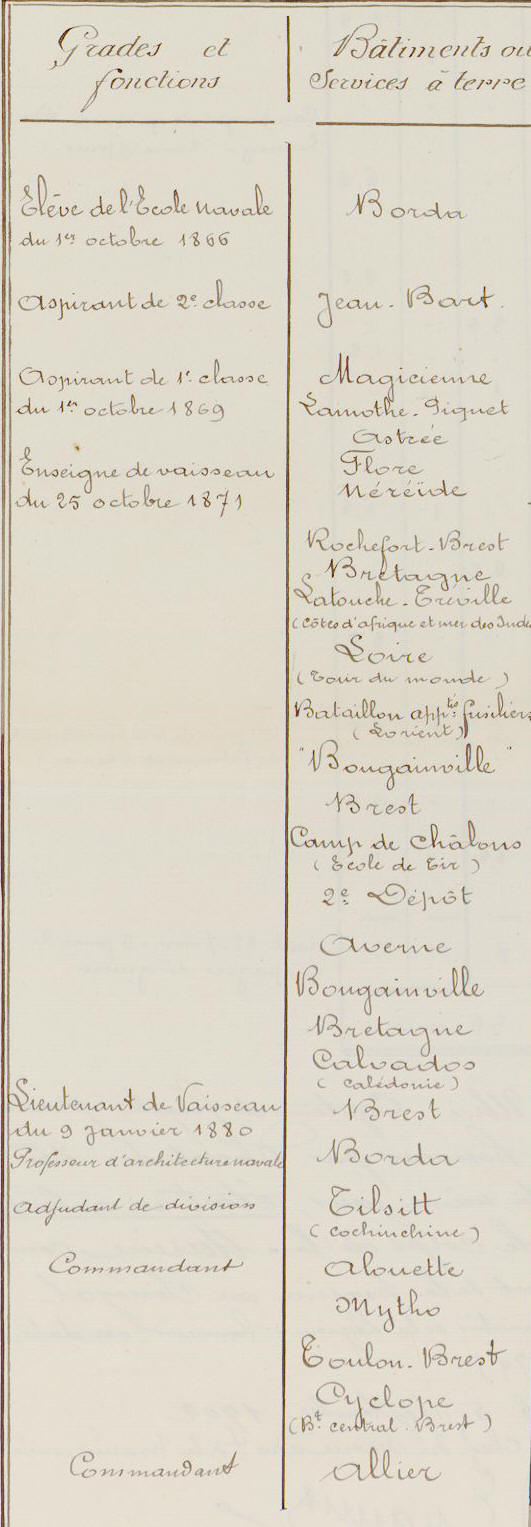 Grades et
fonctions
Bâtiments ou
Services à terre
Elève de l'Ecole navale
du 1er octobre 1866
Borda
Aspirant de 2e classe
Jean-Bart.
Aspirant de 1e classe
du 1er octobre 1869
Magicienne
Lamothe-Piquet
Astrée
Enseigne de vaisseau
du 25 octobre 1871
Flore
Néréïde
Rochefort-Brest
Bretagne
Latouche-Tréville
(Côtes d'afrique et mer des Indes
Loire
(Tour du monde)
Bataillon apptis fusiliers
(Lorient)
"Bougainville"
Brest
Camp de Châlons
(Ecole de Tir)
2e Dépôt
Averne
Bougainville
Bretagne
Calvados
(Calédonie)
Lieutenant de Vaisseau
du 9 Janvier 1880
Brest
Professeur d'architecture navale
Borda
Adjudant de division
Tilsitt
(Cochinchine)
Commandant
Alouette
Mytho
Toulon-Brest
Cyclope
(Bt central. Brest)
Commandant
Allier